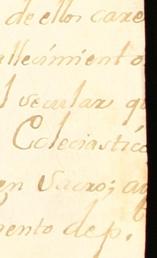 de ellos care
allecimiento
l secular qu
Eclesiastico
en Sacro; a
mento de p.